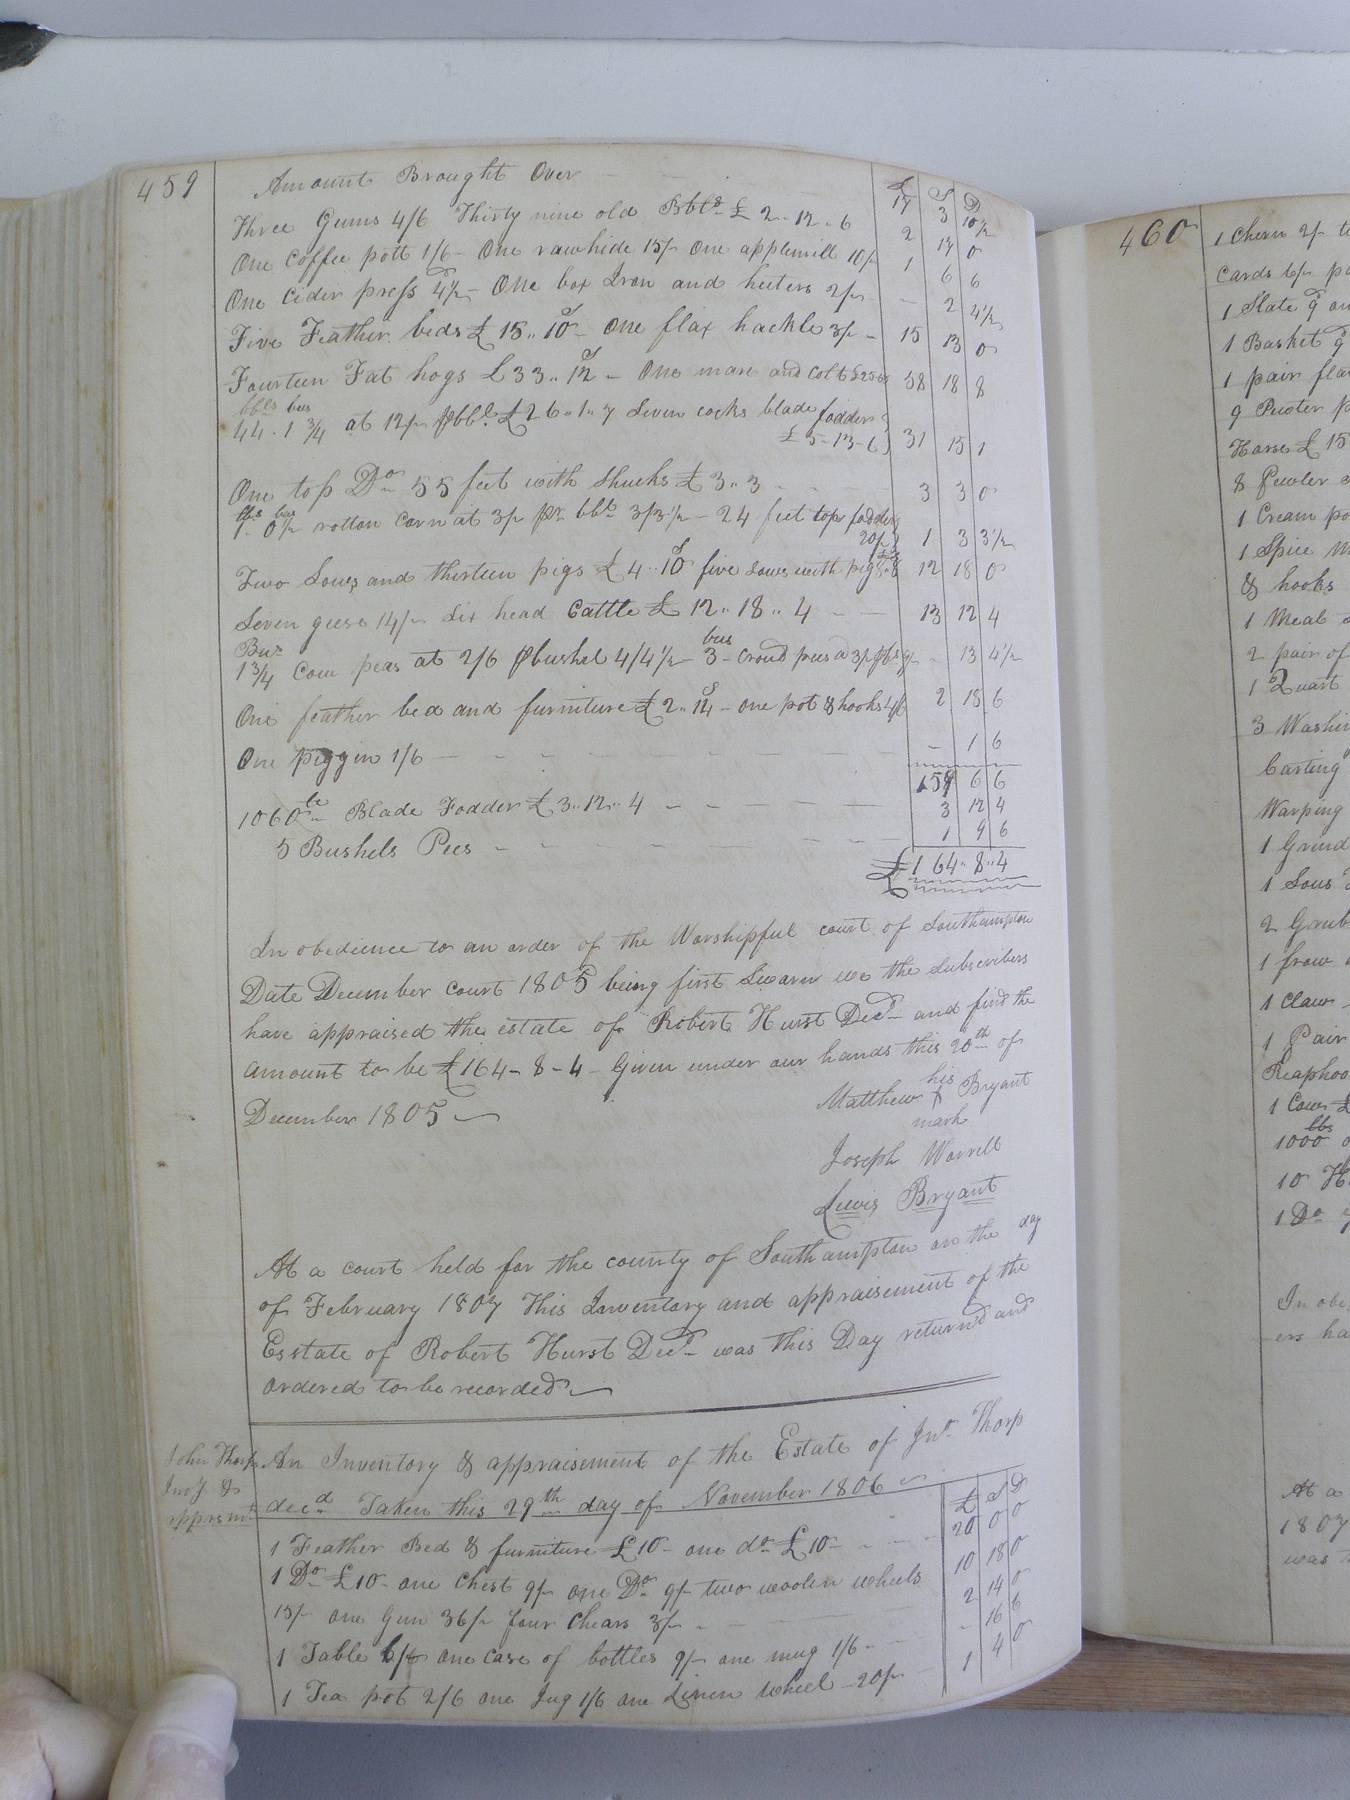 459
Amount Brought Over £ S D
17 3 10½
Three Gums 4/6 Thirty nine old Bbls £ 2..12..6 2 17 0
One Coffee pott 1/6 - One rawhide 15/- One applemill 10/- 1 6 6
One Cider press 4½ - One box Iron and heeters 2/- - 2 4½
Five Feather beds £ 15..10 - One flax hackle 3/- 15 13 0
Fourteen Fat hogs £33..12 - One mare and Colt 58 18 8
bbls bus
44.1¾ at 12/- ⅌ bbl. £26..1..7 Seven cocks blade fodder
£5-13-6 31 15 1
One top Do 55 feet with Shucks £3..3 3 3 0
bbs bus
1. 0½ rotton Corn at 3/- pr bbl 3/3½ - 24 feet top fodder
20/- 1 3 3½
Two Sows and thirteen pigs £4..10 five sows with pigs 12 18 0
Seven geese 14/- Six head Cattle £ 12..18..4 13 12 4
Bus bus
1¾ Cow peas at 2/6 ⅌ bushel 4/4½ - 3 - Croud pees a 3/- - 13 4½
One feather bed and furniture £2..14 - one pot & hooks 4/6 2 18 6
One piggin 1/6 - 1 6
159 6 6
1060 lb Blade Fodder £3..12..4 3 12 4
5 Bushels Pees 1 9 6
£164..8..4
In obedience to an order of the Worshipful court of Southampton
Date December court 1805 being first Swarn we the subscribers
have appraised the estate of Robert Hurst Decd and find the
amount to be £164-8-4 Given under our hands this 20th of
December 1805
his
Matthew X Bryant
mark
Joseph Worrell
Lewis Bryant
At a court held for the county of Southampton on the day
of February 1807 This Inventory and appraisement of the
Esstate of Robert Hurst Decd was this Day returnd and
ordered to be recorded
John Thorp
Invy &
apprsmt
An Inventory & appraisement of the Estate of Jno Thorp
decd Taken this 29th day of November 1806 £ S D
1 Feather Bed & furniture £10 - one do £10 20 0 0
1 Do £10 - one Chest 9/- one Do 9/- two woolen wheels 10 18 0
15/- one Gun 36/- four Chears 3/- 2 14 0
1 Table 6/- one case of bottles 9/- one mug 1/6 - 16 6
1 Tea pot 2/6 one Jug 1/6 one Linen wheel 20/- 1 4 0
460
1 Chern 2/-
Cards 6/-
1 Slate
1 Basket
1 pair
9 Pewter
Horse £15
8 Pewter
1 Cream
1 Spice
& hooks
1 Meal
2 pair of
1 Quart
3
Carting
Warping
1
1 Sows
2
1 frow
1 Claw
1 Pair
1 Cow £
lbs
1000
10
1 Do
In
ers ha
At a
1807
was